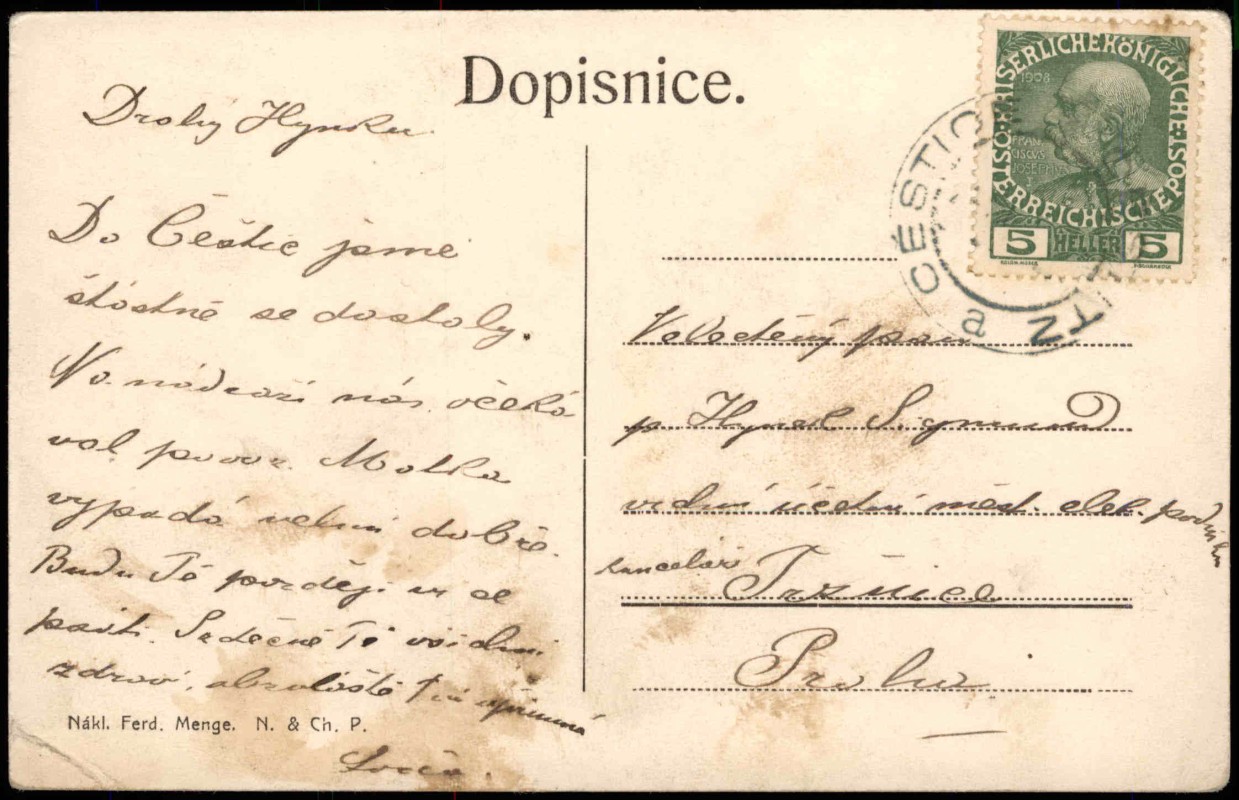 Dopisnice.
Drahý Hynku
Do Čestic jsme
šťastně se dostaly.
Na nádraží nás očeká
val povoz. Matka
vypadá velmi dobře.
Budu Tě později více
psáti. Srdečně Ti všichni
zdraví, obzvláště Tvá upřímná
Nákl. Ferd. Menge. N. & Ch. P.
KAISERLICHEKÖNIGLICHE
ÖSTERREICHISCHE POST
1908
FRAN
CISCUS
JOSEPHUS
5 HELLER 5
ČESTICE
a
Veleděný pan
p. Hynek Sigmund
vrchní účetní měst. elek. podniku
kancelář Tržnice
Praha